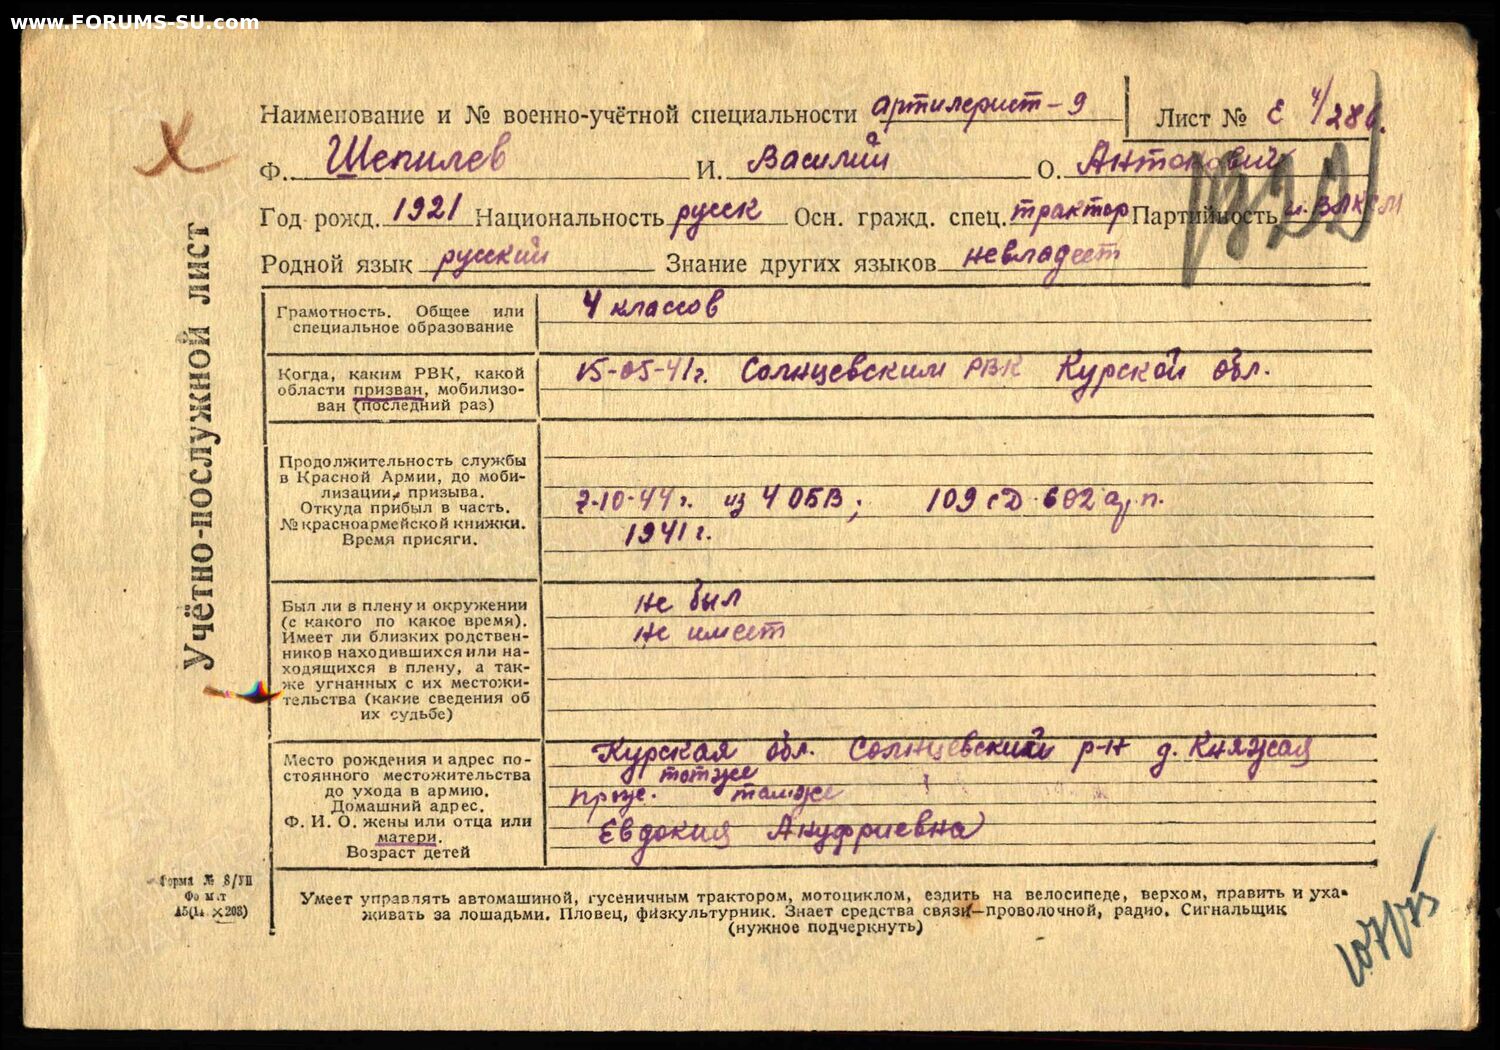 www.FORUMS-SU.com
Учётно-послужной лист
Наименование и № военно-учётной специальности артилерист-9 Лист № Е 4/286.
Ф. Шепилев И. Василий О. Антонович
Год рожд. 1921 Национальность русск Осн. гражд. спец. трактор Партийность ч. ВЛКСМ
Родной язык русский Знание других языков невладеет
Грамотность. Общее или специальное образование
4 классов
Когда, каким РВК, какой области призван, мобилизован (последний раз)
15-05-41г. Солнцевским РВК Курской обл.
Продолжительность службы
в Красной Армии, до моби-
лизации, призыва.
Откуда прибыл в часть.
№ красноармейской книжки.
Время присяги.
7-10-44г. из 4 ОБВ; 109 сД 602 а.п.
1941г.
Был ли в плену и окружении
(с какого по какое время).
Имеет ли близких родствен-
ников находившихся или на-
ходящихся в плену, а так-
же угнанных с их местожи-
тельства (какие сведения об
их судьбе)
не был
не имеет
Место рождения и адрес по-
стоянного местожительства
до ухода в армию.
Домашний адрес.
Ф. И. О. жены или отца или
матери.
Возраст детей
Курская обл. Солнцевский р-н д. Княжая
тотже
прож. тамже
Евдокия Ануфриевна
Форма № 8/УП
Формат
А5(1/ X 203)
Умеет управлять автомашиной, гусеничным трактором, мотоциклом, ездить на велосипеде, верхом, править и уха-
живать за лошадьми. Пловец, физкультурник. Знает средства связи-проволочной, радио. Сигнальщик
(нужное подчеркнуть)